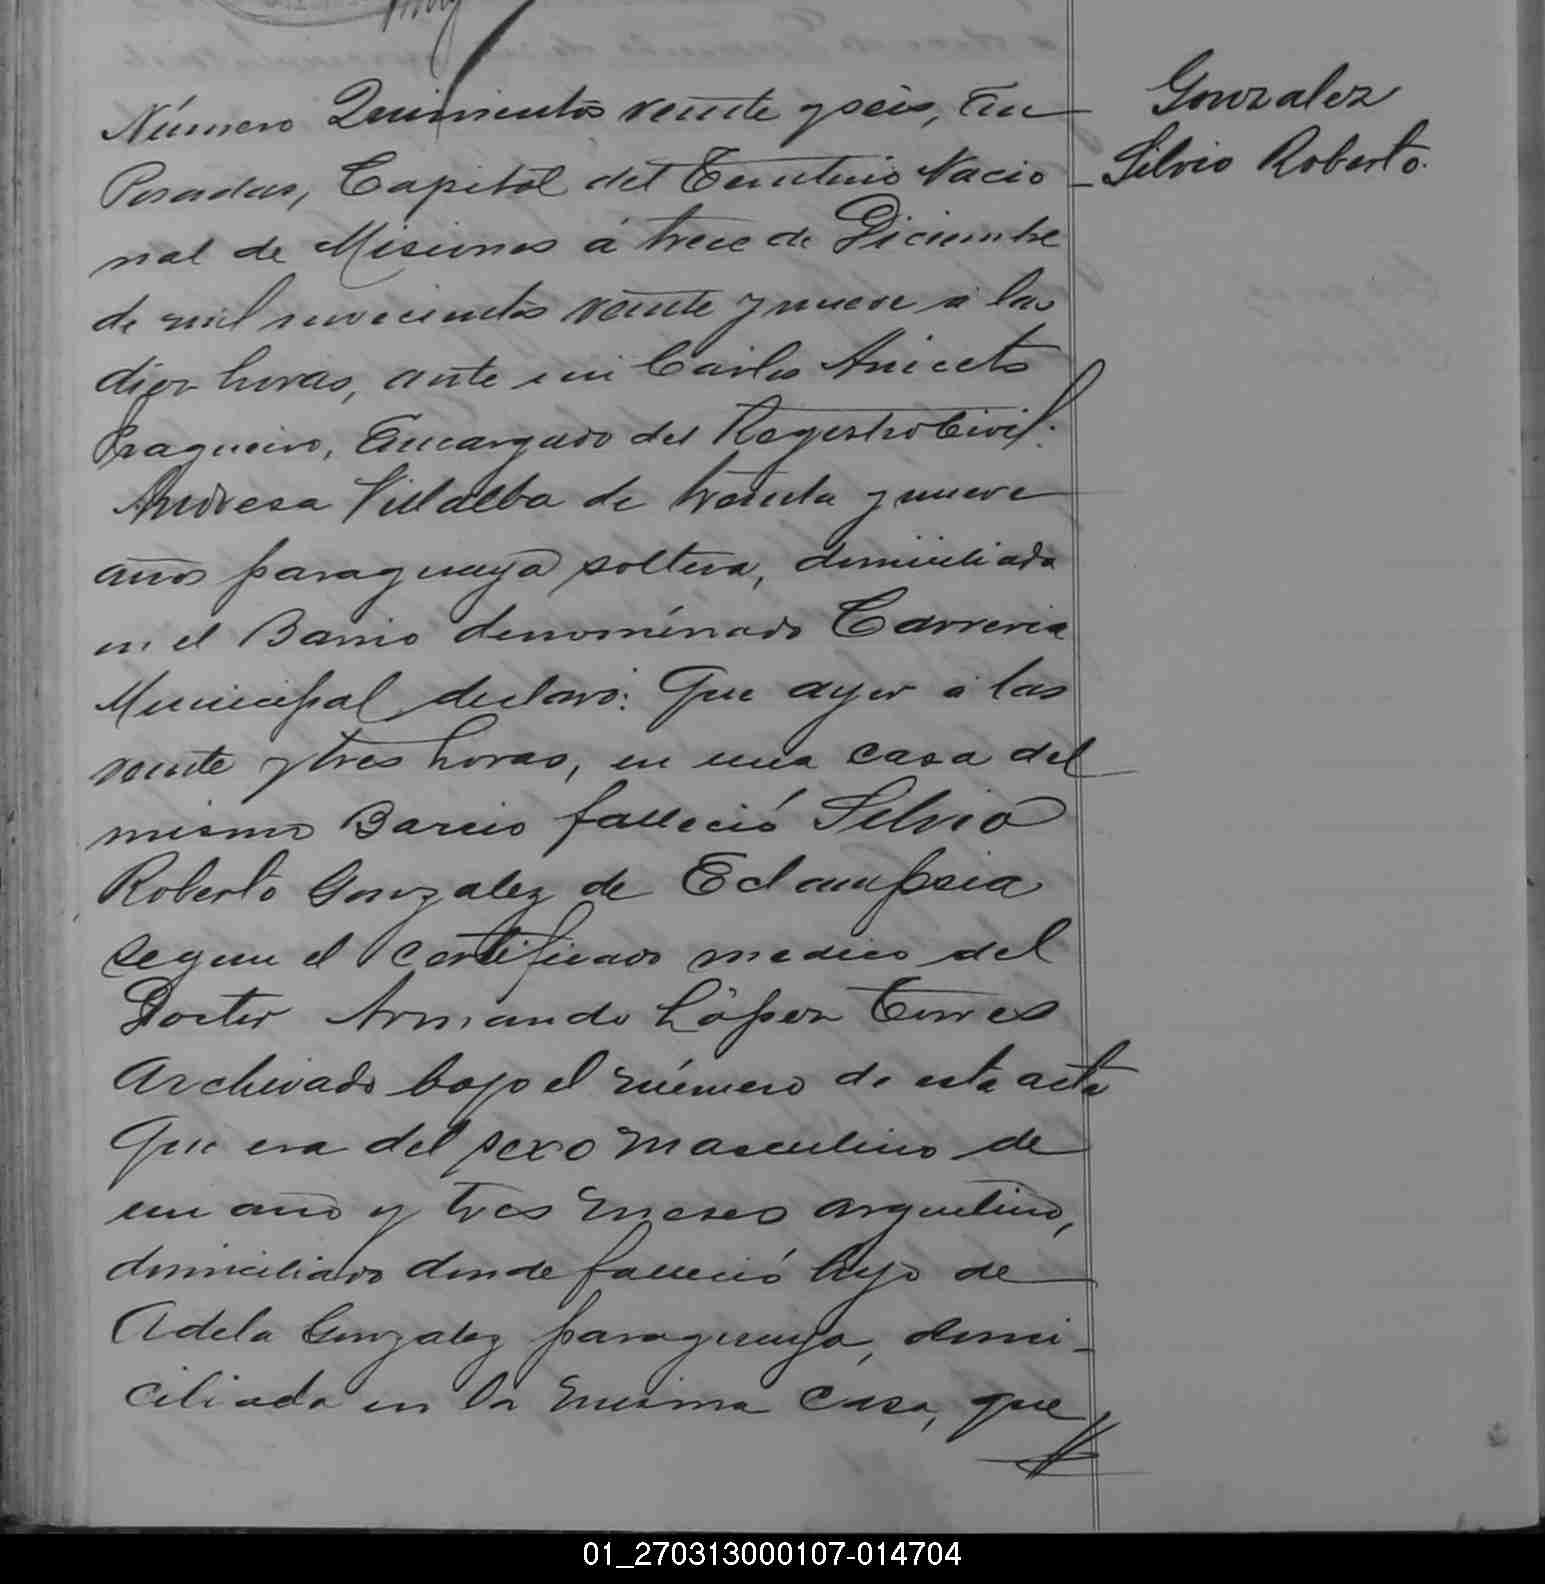 Gonzalez
Silvio Roberto.
Número Quinientos veinte y seis, En
Posadas, Capital del Territorio Nacio
nal de Misiones á trece de Diciembre
de mil novecientos veinte y nueve a las
diez horas, ante mi Carlos Aniceto
Fragueiro, Encargado del Registro Civil:
Andresa Villalba de treinta y nueve
años paraguaya soltera, domiciliada
en el Barrio denominado Carreria
Municipal declaró: Que ayer a las
veinte y tres horas, en una casa del
mismo Barrio falleció Silvio
Roberto Gonzalez de Eclampsia
segun el certificado medico del
Doctor Armando López Torres
Archivado bajo el número de esta acta
Que era del sexo masculino de
un año y tres meses argentino,
domiciliado donde falleció hijo de
Adela Gonzalez paraguaya, domi-
ciliada en la misma casa, que
01_270313000107-014704